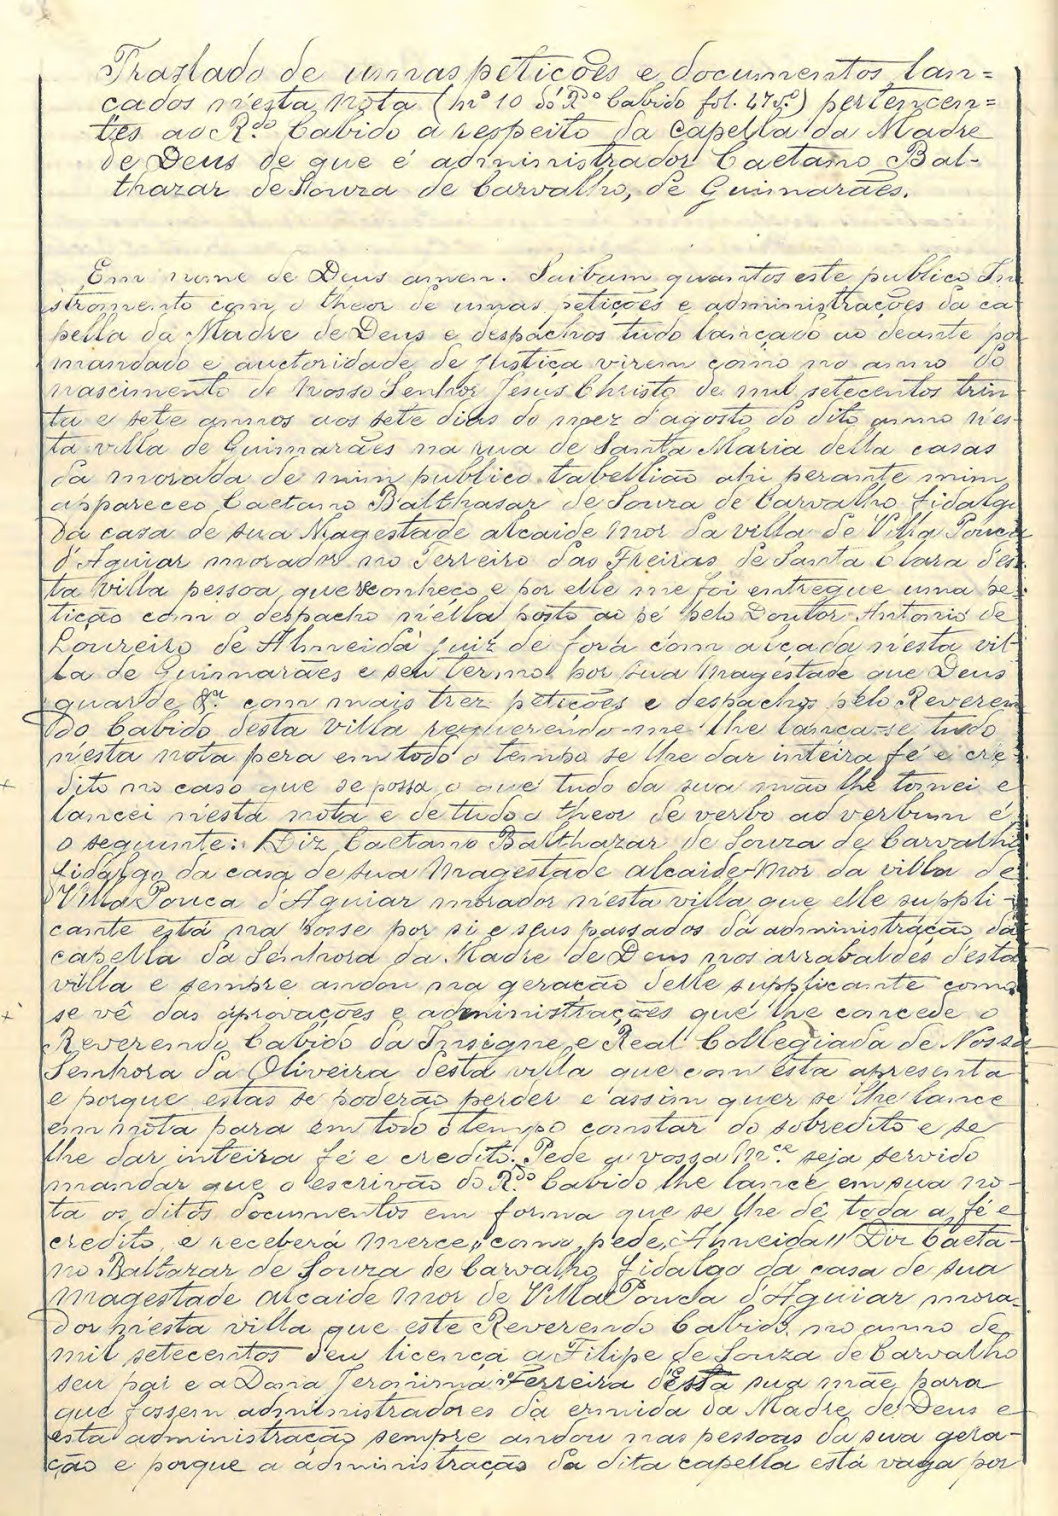 Traslado de umas petições e documentos lan=
çados n'esta nota (nº 10 do Rdo Cabido fol. 47 vº) pertencen=
tes ao Rdo Cabido a respeito da capella da Madre
de Deus de que é administrador Caetano Bal-
thazar de Souza de Carvalho, de Guimarães.
Em nome de Deus amen. Saibam quantos este publico In
stromento com o theor de umas petições e administrações da ca
pella da Madre de Deus e despachos tudo lançado ao deante por
mandado e auctoridade de justiça virem como no anno do
nascimento de Nosso Senhor Jesus Christo de mil setecentos trin
ta e sete annos aos sete dias do mez d'agosto do dito anno n'es-
ta villa de Guimarães na rua de Santa Maria della casas
da morada de mim publico tabellião ahi perante mim
appareceo Caetano Balthasar de Souza de Carvalho fidalgo
da casa de sua Magestade alcaide mor da villa de Villa Pouca
d'Aguiar morador no Terreiro das Freiras de Santa Clara des
ta villa pessoa que reconheço e por elle me foi entregue uma pe
tição com o despacho n'ella posto ao pé pelo Doutor Antonio de
Loureiro de Almeida juiz de fora com alçada n'esta vil-
la de Guimarães e seu termo por sua Magestade que Deus
guarde &ª com mais trez petições e despachos pelo Reveren
do Cabido desta villa requerendo-me lhe lança-se tudo
n'esta nota pera em todo o tempo se lhe dar inteira fé e cre
dito no caso que se possa o que tudo da sua mão lhe tomei e
lancei n'esta nota e de tudo o theor de verbo ad verbum é
o seguinte: Diz Caetano Balthazar de Souza de Carvalho
fidalgo da casa de sua Magestade alcaide-mor da villa de
Villa Pouca d'Aguiar morador n'esta villa que elle suppli-
cante está na posse por si e seus passados da administração da
capella da Senhora da Madre de Deus nos arrabaldes d'esta
villa e sempre andou na geração delle supplicante como
se vê das aprovações e administrações que lhe concede o
Reverendo Cabido da Insigne e Real Collegiada de Nossa
Senhora da Oliveira desta villa que com esta apresenta
e porque estas se poderão perder e assim quer se lhe lance
em nota para em todo o tempo constar do sobredito e se
lhe dar inteira fé e credito. Pede a vossa Mce seja servido
mandar que o escrivão do Rdo Cabido lhe lance em sua no-
ta os ditos documentos em forma que se lhe dê toda a fé e
credito e receberá merce,, como pede, Almeida // Diz Caeta-
no Baltazar de Souza de Carvalho fidalgo da casa de sua
Magestade alcaide mor de Villa Pouca d'Aguiar mora-
dor n'esta villa que este Reverendo Cabido no anno de
mil setecentos deu licença a Filipe de Souza de Carvalho
seu pai e a Dona Jeronima Ferreira d'Essa sua mãe para
que fossem administradores da ermida da Madre de Deus e
esta administração sempre andou nas pessoas da sua gera-
ção e porque a administração da dita capella está vaga por